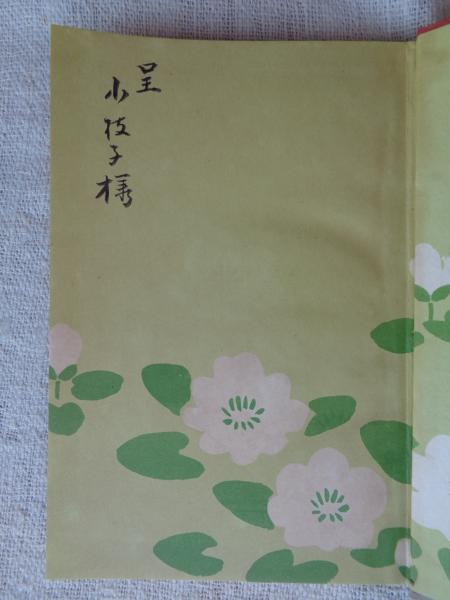 呈
小枝子様